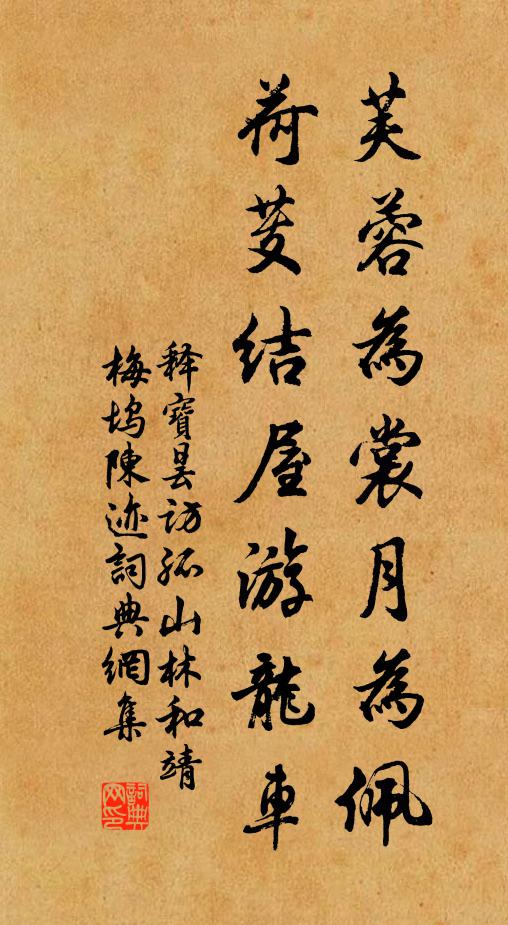 芙蓉為裳月為佩
荷芰結屋游龍車
释寶曇訪孤山林和靖
梅塢陳迹詞典網集
詞典
网印